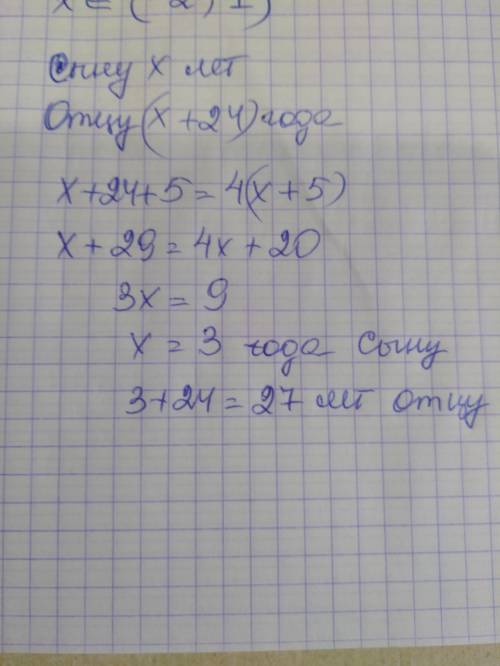 Сыну x лет
Отцу (x + 24) года
x + 24 + 5 = 4(x + 5)
x + 29 = 4x + 20
3x = 9
x = 3 года сыну
3 + 24 = 27 лет отцу